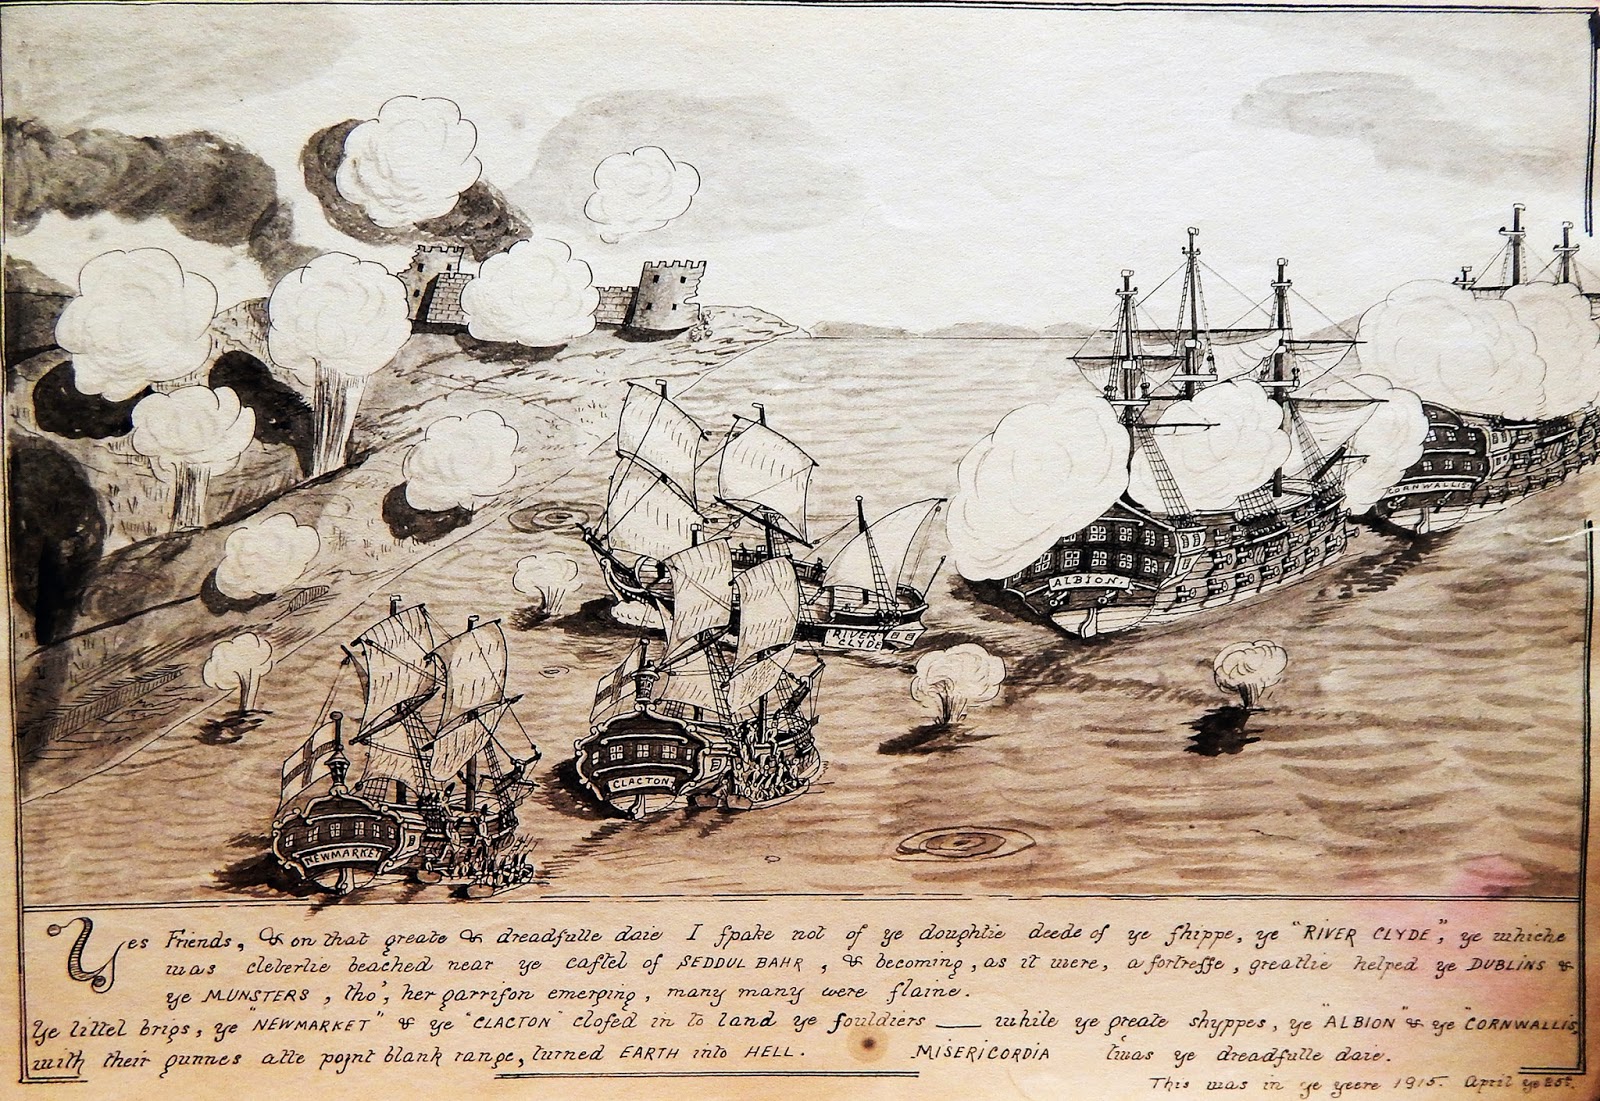 ALBION.
CORNWALLIS.
RIVER
CLYDE
CLACTON
NEWMARKET
Yes Friends, & on that greate & dreadfulle daie I fpake not of ye doughtie deede of ye fhippe, ye "RIVER CLYDE", ye whiche
was cleverlie beached near ye caftel of SEDDUL BAHR, & becoming, as it were, a fortreffe, greatlie helped ye DUBLINS &
ye MUNSTERS, tho', her garrifon emerging, many many were flaine.
Ye littel brigs, ye "NEWMARKET" & ye "CLACTON" clofed in to land ye fouldiers — while ye greate shyppes, ye "ALBION" & ye "CORNWALLIS,
with their gunnes atte poynt blank range, turned EARTH into HELL. MISERICORDIA twas ye dreadfulle daie.
This was in ye yeere 1915. April ye 25t.